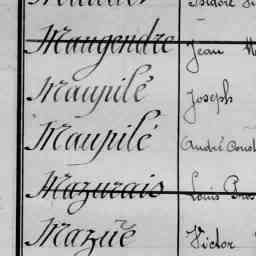 Maugendre Jean
Maupilé Joseph
Maupilé André Const
Mazurais Louis
Mazuë Victor